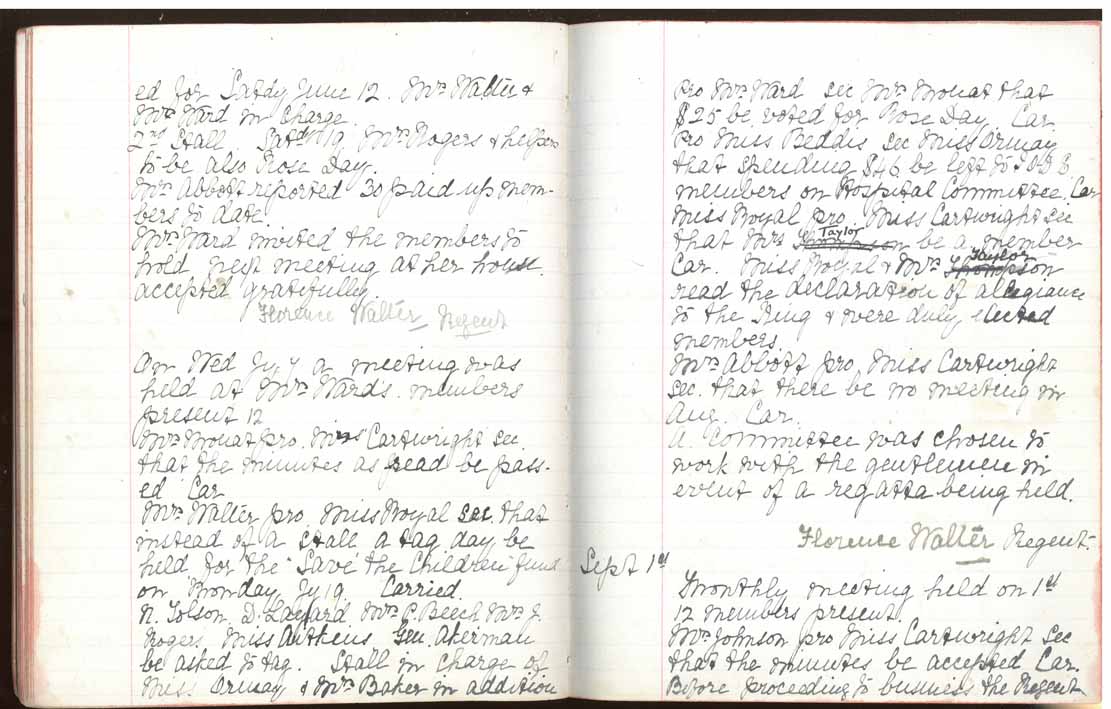 ed for Satdy June 12. Mrs Walter &
Mrs Ward in charge.
2nd Stall. Satdy 19 Mrs Rogers & helpers
to be also Rose Day.
Mrs Abbott reported 30 paid up mem-
bers to date.
Mrs Ward invited the members to
hold next meeting at her house.
accepted gratifully
Florence Walter Regent
On Wed Jy. 7 a meeting was
held at Mrs Ward's. members
present 12
Mrs Mouat pro. Miss Cartwright sec
that the minutes as read be pass-
ed Car
Mrs Walter pro. Miss Royal sec that
instead of a stall a tag day be
held for the "Save the Children" fund
on Monday, Jy 19. Carried.
N. Tolson. D. Layard Mrs C. Beech Mrs J.
Rogers Miss Aitkens Gen. Akerman
be asked to tag. Stall in charge of
Miss Ormay & Mrs Baker in addition
Pro Mrs Ward sec Mrs Mouat that
$25 be voted for Rose Day. Car.
Pro Miss Beddis sec Miss Ormay
that spending $46 be left to I.O.D.E
members on Hospital Committee. Car
Miss Royal pro. Miss Cartwright sec
that Mrs Taylor be a member
Car. Miss Royal & Mrs Taylor Thompson
read the declaration of allegiance
to the King & were duly elected
members.
Mrs Abbott pro Miss Cartwright
sec. that there be no meeting in
Aug. Car.
A. Committee was chosen to
work with the gentlemen in
event of a regatta being held.
Florence Walter Regent.
Sept 1st
Monthly meeting held on 1st
12 members present.
Mrs Johnson pro Miss Cartwright sec
that the minutes be accepted Car.
Before proceeding to business the Regent